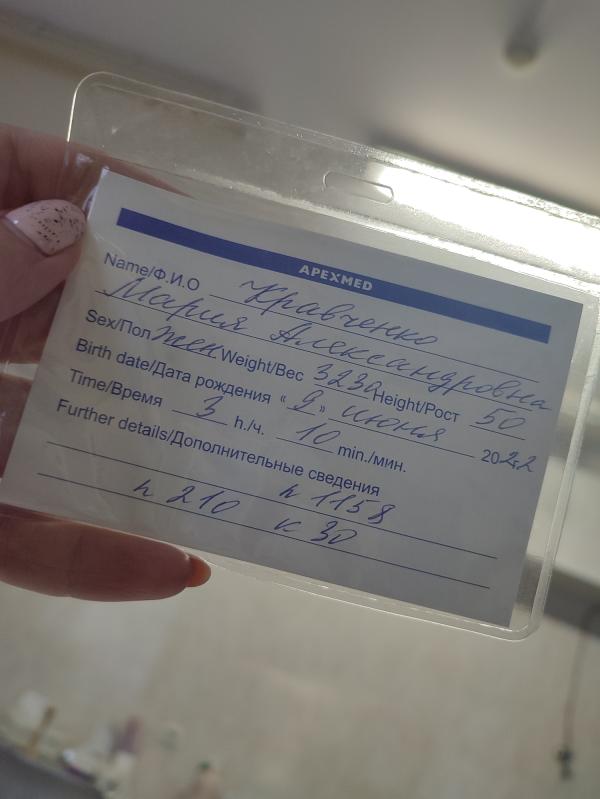 APEXMED
Name/Ф.И.О Кравченко
Мария Александровна
Sex/Пол жен Weight/Вес 3230 Height/Рост 50
Birth date/Дата рождения «9» июня 2022
Time/Время 3 h./ч. 10 min./мин.
Further details/Дополнительные сведения
п 1158
п 210 к 30